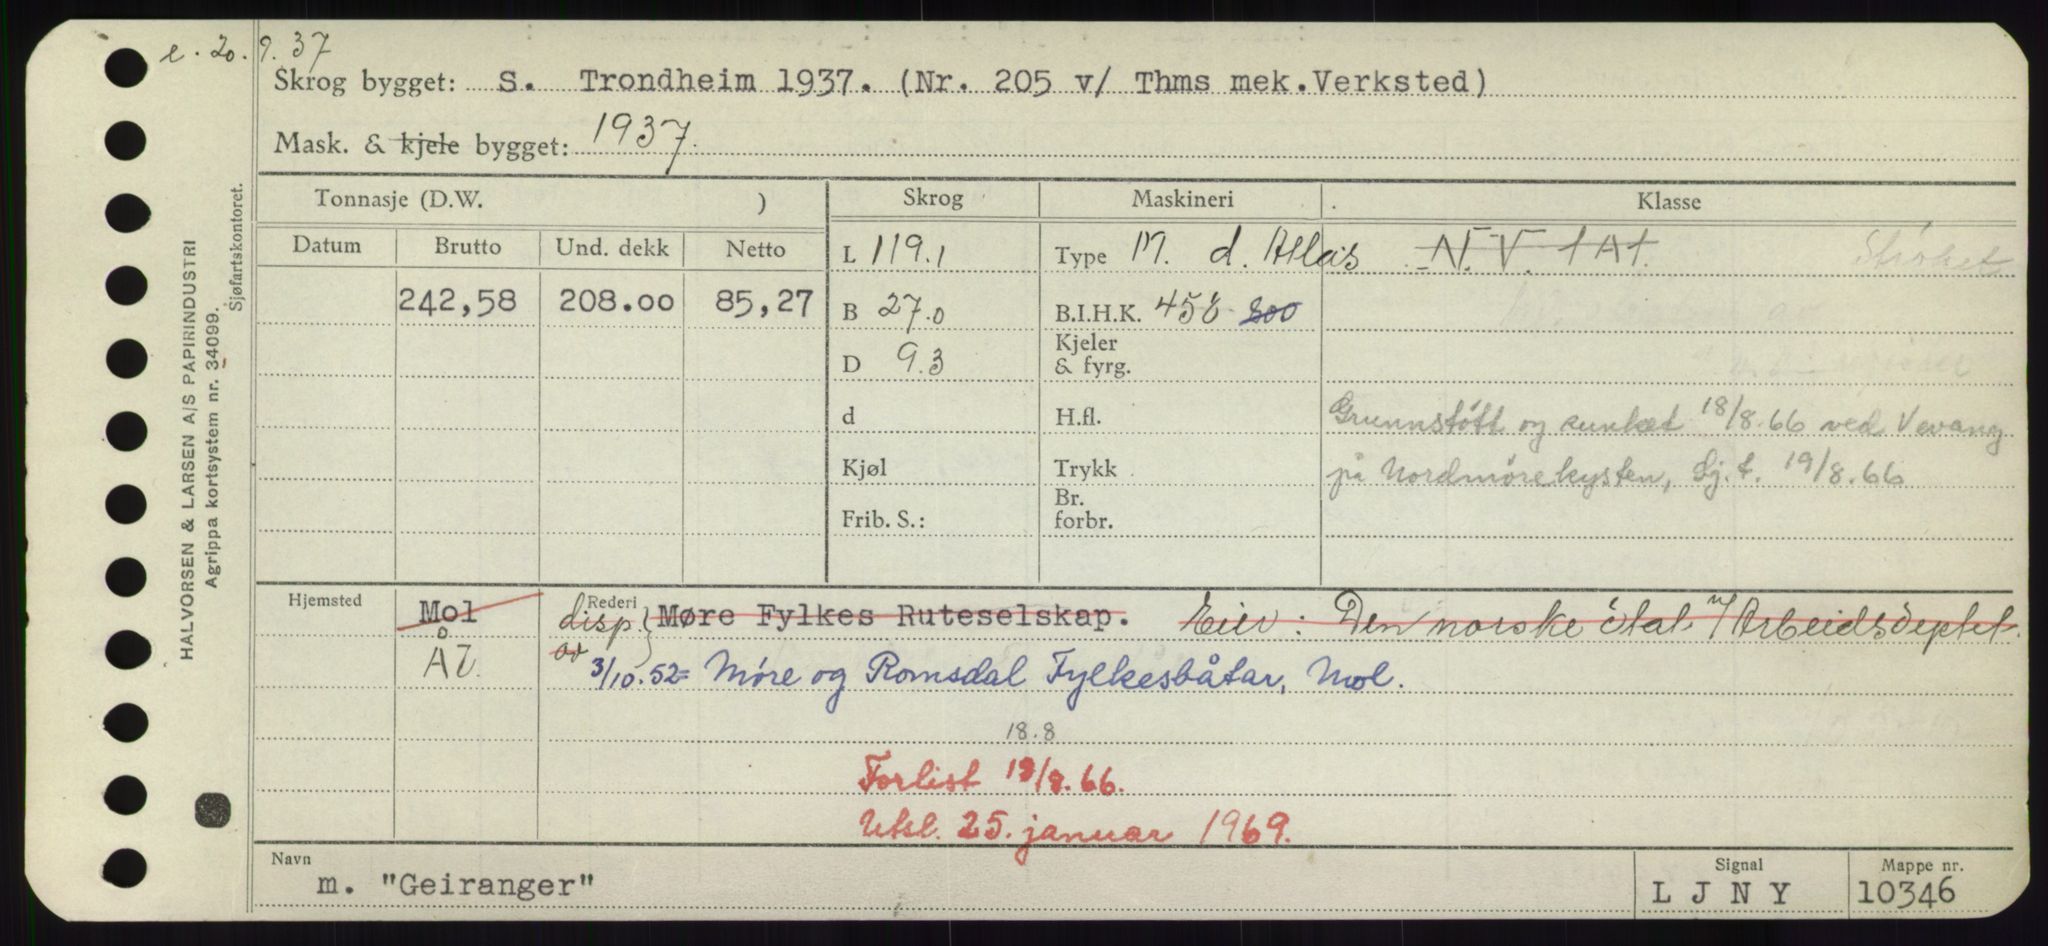 e. 20. 9. 37
Skrog bygget: S. Trondheim 1937. (Nr. 205 v/ Thms mek.Verksted)
Mask. & kjele bygget: 1937.
Tonnasje (D.W. ) Skrog Maskineri Klasse
Datum Brutto Und. dekk Netto L 119.1 Type M. d. Atlas N.V. 1A1. Strøket
242,58 208.00 85,27 B 27.0 B.I.H.K. 458 800
D 9.3 Kjeler & fyrg.
d H.fl. Grunnstøtt og sunket 18/8.66 ved Vevang
Kjøl Trykk på Nordmørekysten, Sj.t. 19/8.66
Frib. S.: Br. forbr.
Hjemsted Mol Rederi disp. av Møre Fylkes Ruteselskap. Eier: Den norske Stat v/ Arbeidsdeptet.
Å 3/10.52= Møre og Romsdal Fylkesbåtar, Mol.
18.8
Forlist 18/8.66.
Utsl. 25. januar 1969.
Navn Signal Mappe nr.
m. "Geiranger" LJNY 10346
HALVORSEN & LARSEN A/S PAPIRINDUSTRI
Agrippa kortsystem nr. 34099.
Sjøfartskontoret.